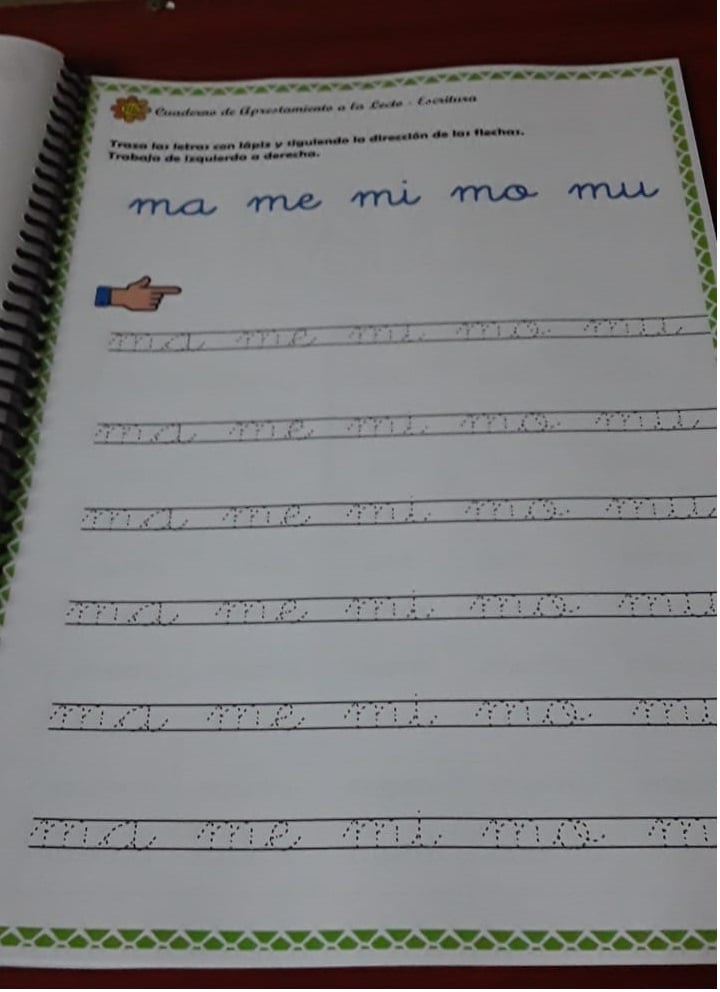 Cuaderno de Aprestamiento a la Lecto - Escritura
Traza las letras con lápiz y siguiendo la dirección de las flechas.
Trabaja de izquierda a derecha.
ma me mi mo mu
ma me mi mo mu
ma me mi mo mu
ma me mi mo mu
ma me mi mo mu
ma me mi mo mu
ma me mi mo m